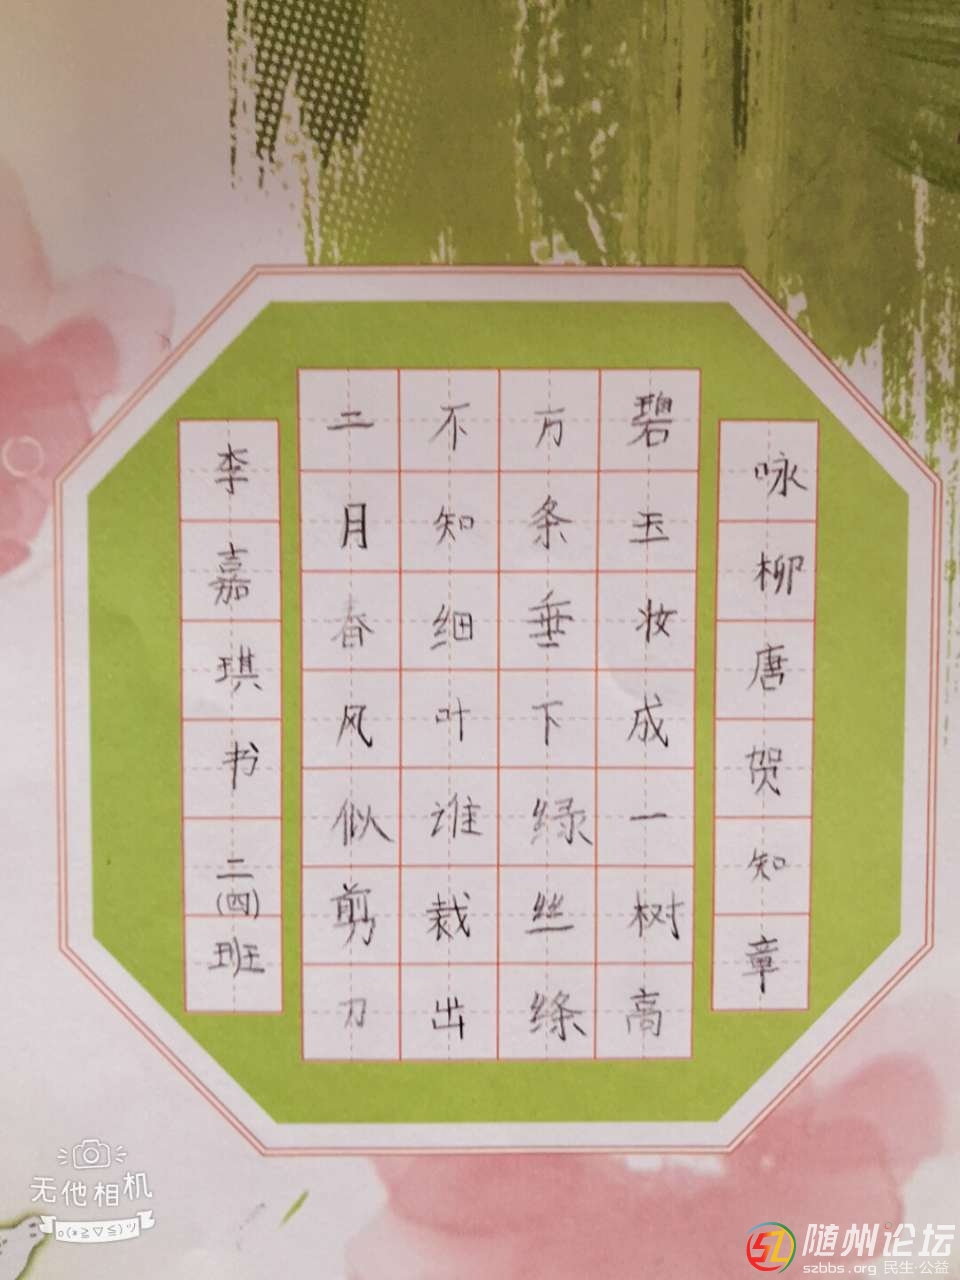 咏柳唐贺知章
碧玉妆成一树高
万条垂下绿丝绦
不知细叶谁裁出
二月春风似剪刀
李嘉琪书二(四)班
无他相机
o(*≧▽≦)ツ
随州论坛
szbbs.org 民生·公益